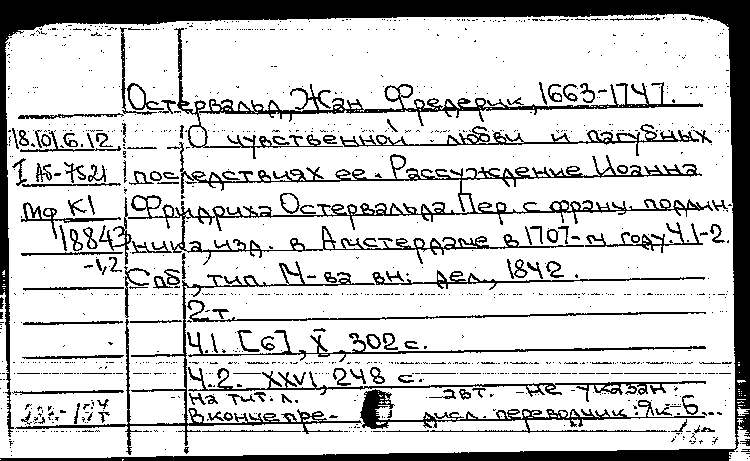 Остервальд, Жан Фредерик, 1663-1747.
18.101.6.12 О чувственной любви и пагубных
I АБ-7521 последствиях ее. Рассуждение Иоанна
Мф К1 Фридриха Остервальда. Пер. с франц. подлин-
18843 ника, изд. в Амстердаме в 1707-м году. Ч.1-2.
-1,2 Спб., тип. М-ва вн. дел, 1842.
2т.
Ч.1. [6], X, 302 с.
Ч.2. XXVI, 248 с.
На тит. л. авт. не указан.
В конце пре- дисл. переводчик: Як. Б...